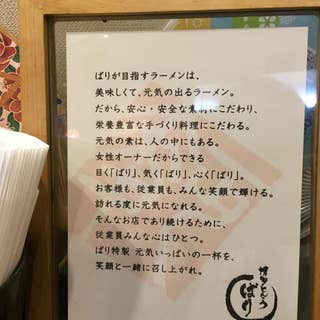 ばりが目指すラーメンは、
美味しくて、元気の出るラーメン。
だから、安心・安全な素材にこだわり、
栄養豊富な手づくり料理にこだわる。
元気の素は、人の中にもある。
女性オーナーだからできる
目く「ばり」、気く「ばり」、心く「ばり」。
お客様も、従業員も、みんな笑顔で輝ける。
訪れる度に元気になれる。
そんなお店であり続けるために、
従業員みんな心はひとつ。
ばり特製 元気いっぱいの一杯を、
笑顔と一緒に召し上がれ。
ばり